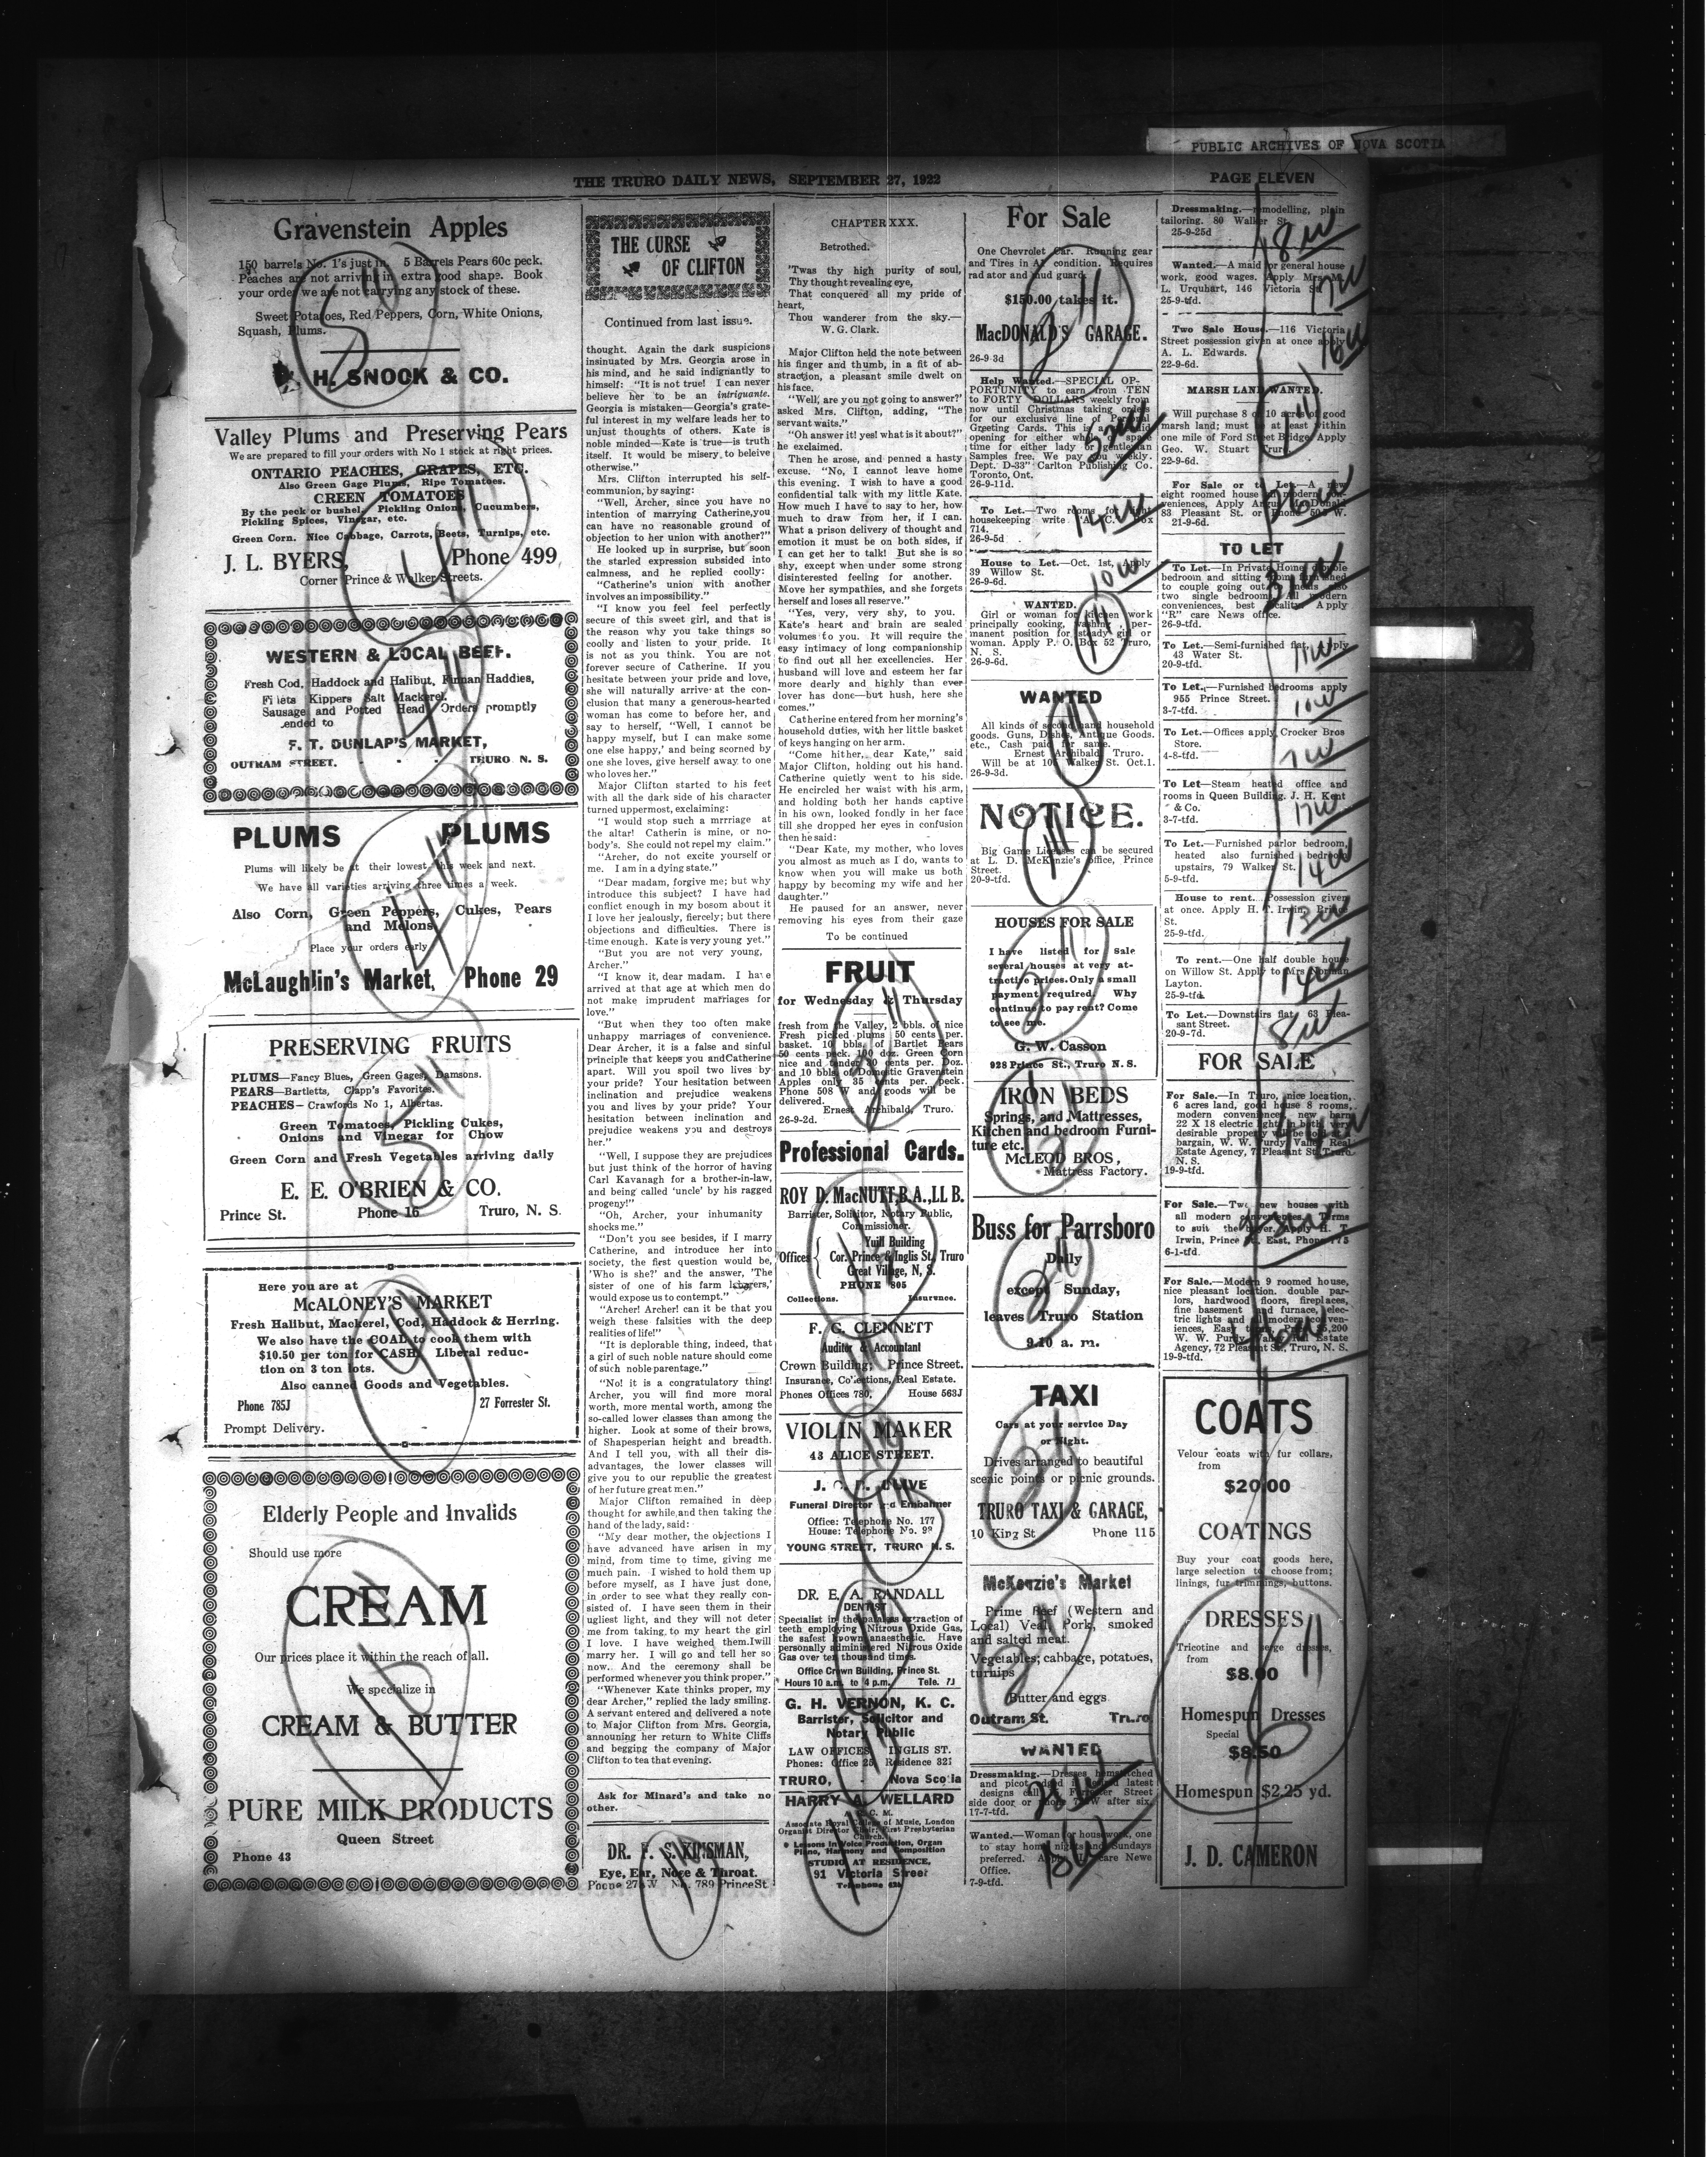 PUBLIC ARCHIVES OF NOVA SCOTIA
THE TRURO DAILY NEWS, SEPTEMBER 27, 1922
PAGE ELEVEN
Gravenstein Apples
150 barrels No. 1's just in. 5 Barrels Pears 60c peck.
Peaches are not arriving in extra good shape. Book
your order we are not carrying any stock of these.
Sweet Potatoes, Red Peppers, Corn, White Onions,
Squash, Plums.
H. SNOOK & CO.
Valley Plums and Preserving Pears
We are prepared to fill your orders with No 1 stock at right prices.
ONTARIO PEACHES, GRAPES, ETC.
Also Green Gage Plums, Ripe Tomatoes.
GREEN TOMATOES
By the peck or bushel. Pickling Onions, Cucumbers,
Pickling Spices, Vinegar, etc.
Green Corn. Nice Cabbage, Carrots, Beets, Turnips, etc.
J. L. BYERS, Phone 499
Corner Prince & Walker Streets.
WESTERN & LOCAL BEEF.
Fresh Cod, Haddock and Halibut, Finnan Haddies,
Filets Kippers Salt Mackerel.
Sausage and Potted Head Orders promptly
ended to
F. T. DUNLAP'S MARKET,
OUTRAM STREET. - - - TRURO N. S.
PLUMS PLUMS
Plums will likely be at their lowest this week and next.
We have all varieties arriving three times a week.
Also Corn, Green Peppers, Cukes, Pears
and Melons
Place your orders early
McLaughlin's Market, Phone 29
PRESERVING FRUITS
PLUMS—Fancy Blues, Green Gages, Damsons.
PEARS—Bartletts, Clapp's Favorites.
PEACHES—Crawfords No 1, Albertas.
Green Tomatoes, Pickling Cukes,
Onions and Vinegar for Chow
Green Corn and Fresh Vegetables arriving daily
E. E. O'BRIEN & CO.
Prince St. Phone 16 Truro, N. S.
Here you are at
McALONEY'S MARKET
Fresh Halibut, Mackerel, Cod, Haddock & Herring.
We also have the COAL to cook them with
$10.50 per ton for CASH. Liberal reduc-
tion on 3 ton lots.
Also canned Goods and Vegetables.
Phone 785J 27 Forrester St.
Prompt Delivery.
Elderly People and Invalids
Should use more
CREAM
Our prices place it within the reach of all.
We specialize in
CREAM & BUTTER
PURE MILK PRODUCTS
Queen Street
Phone 43
THE CURSE
OF CLIFTON
Continued from last issue.
thought. Again the dark suspicions
insinuated by Mrs. Georgia arose in
his mind, and he said indignantly to
himself: "It is not true! I can never
believe her to be an intriguante.
Georgia is mistaken—Georgia's grate-
ful interest in my welfare leads her to
unjust thoughts of others. Kate is
noble minded—Kate is true—is truth
itself. It would be misery to beleive
otherwise."
Mrs. Clifton interrupted his self-
communion, by saying:
"Well, Archer, since you have no
intention of marrying Catherine,you
can have no reasonable ground of
objection to her union with another?"
He looked up in surprise, but soon
the starled expression subsided into
calmness, and he replied coolly:
"Catherine's union with another
involves an impossibility."
"I know you feel feel perfectly
secure of this sweet girl, and that is
the reason why you take things so
coolly and listen to your pride. It
is not as you think. You are not
forever secure of Catherine. If you
hesitate between your pride and love,
she will naturally arrive at the con-
clusion that many a generous-hearted
woman has come to before her, and
say to herself, "Well, I cannot be
happy myself, but I can make some
one else happy,' and being scorned by
one she loves, give herself away to one
who loves her."
Major Clifton started to his feet
with all the dark side of his character
turned uppermost, exclaiming:
"I would stop such a mrrriage at
the altar! Catherin is mine, or no-
body's. She could not repel my claim."
"Archer, do not excite yourself or
me. I am in a dying state."
"Dear madam, forgive me; but why
introduce this subject? I have had
conflict enough in my bosom about it
I love her jealously, fiercely; but there
objections and difficulties. There is
time enough. Kate is very young yet."
"But you are not very young,
Archer."
"I know it, dear madam. I have
arrived at that age at which men do
not make imprudent marriages for
love."
"But when they too often make
unhappy marriages of convenience.
Dear Archer, it is a false and sinful
principle that keeps you andCatherine
apart. Will you spoil two lives by
your pride? Your hesitation between
inclination and prejudice weakens
you and lives by your pride? Your
hesitation between inclination and
prejudice weakens you and destroys
her."
"Well, I suppose they are prejudices
but just think of the horror of having
Carl Kavanagh for a brother-in-law,
and being called 'uncle' by his ragged
progeny!"
"Oh, Archer, your inhumanity
shocks me."
"Don't you see besides, if I marry
Catherine, and introduce her into
society, the first question would be,
'Who is she?' and the answer, 'The
sister of one of his farm laborers,'
would expose us to contempt."
"Archer! Archer! can it be that you
weigh these falsities with the deep
realities of life!"
"It is deplorable thing, indeed, that
a girl of such noble nature should come
of such noble parentage."
"No! it is a congratulatory thing!
Archer, you will find more moral
worth, more mental worth, among the
so-called lower classes than among the
higher. Look at some of their brows,
of Shapesperian height and breadth.
And I tell you, with all their dis-
advantages, the lower classes will
give you to our republic the greatest
of her future great men."
Major Clifton remained in deep
thought for awhile,and then taking the
hand of the lady, said:
"My dear mother, the objections I
have advanced have arisen in my
mind, from time to time, giving me
much pain. I wished to hold them up
before myself, as I have just done,
in order to see what they really con-
sisted of. I have seen them in their
ugliest light, and they will not deter
me from taking, to my heart the girl
I love. I have weighed them.Iwill
marry her. I will go and tell her so
now. And the ceremony shall be
performed whenever you think proper."
"Whenever Kate thinks proper, my
dear Archer," replied the lady smiling.
A servant entered and delivered a note
to Major Clifton from Mrs. Georgia,
announing her return to White Cliffs
and begging the company of Major
Clifton to tea that evening.
Ask for Minard's and take no
other.
DR. F. S. KINSMAN,
Eye, Ear, Nose & Throat.
789 Prince St.
CHAPTER XXX.
Betrothed.
'Twas thy high purity of soul,
Thy thought revealing eye,
That conquered all my pride of
heart,
Thou wanderer from the sky.—
W. G. Clark.
Major Clifton held the note between
his finger and thumb, in a fit of ab-
straction, a pleasant smile dwelt on
his face.
"Well, are you not going to answer?'
asked Mrs. Clifton, adding, "The
servant waits."
"Oh answer it! yes! what is it about?"
he exclaimed.
Then he arose, and penned a hasty
excuse. "No, I cannot leave home
this evening. I wish to have a good
confidential talk with my little Kate.
How much I have to say to her, how
much to draw from her, if I can.
What a prison delivery of thought and
emotion it must be on both sides, if
I can get her to talk! But she is so
shy, except when under some strong
disinterested feeling for another.
Move her sympathies, and she forgets
herself and loses all reserve."
"Yes, very, very shy, to you.
Kate's heart and brain are sealed
volumes to you. It will require the
easy intimacy of long companionship
to find out all her excellencies. Her
husband will love and esteem her far
more dearly and highly than ever
lover has done—but hush, here she
comes."
Catherine entered from her morning's
household duties, with her little basket
of keys hanging on her arm.
"Come hither, dear Kate," said
Major Clifton, holding out his hand.
Catherine quietly went to his side.
He encircled her waist with his arm,
and holding both her hands captive
in his own, looked fondly in her face
till she dropped her eyes in confusion
then he said:
"Dear Kate, my mother, who loves
you almost as much as I do, wants to
know when you will make us both
happy by becoming my wife and her
daughter."
He paused for an answer, never
removing his eyes from their gaze
To be continued
FRUIT
for Wednesday & Thursday
fresh from the Valley, 2 bbls. of nice
Fresh picked plums 50 cents per.
basket. 10 bbls. of Bartlet Pears
50 cents peck. 100 doz. Green Corn
nice and tender 30 cents per. Doz.
and 10 bbls. of Domestic Gravenstein
Apples only 35 cents per. peck.
Phone 508 W and goods will be
delivered.
Ernest Archibald, Truro.
26-9-2d.
Professional Cards.
ROY D. MacNUTT,B.A.,LL B.
Barrister, Solicitor, Notary Public,
Commissioner.
Offices Yuill Building
Cor. Prince & Inglis St. Truro
Great Village, N. S.
PHONE 805
Collections. Insurence.
F. G. CLENNETT
Auditor & Accountant
Crown Building; Prince Street.
Insurance, Collections, Real Estate.
Phones Offices 780, House 563J
VIOLIN MAKER
43 ALICE STREET.
Funeral Director and Embalmer
Office: Telephone No. 177
House: Telephone No. 99
YOUNG STREET, TRURO N. S.
DR. E. A. RANDALL
DENTIST
Specialist in the painless extraction of
teeth employing Nitrous Oxide Gas,
the safest known anaesthetic. Have
personally administered Nitrous Oxide
Gas over ten thousand times.
Office Crown Building, Prince St.
Hours 10 a.m. to 4 p.m. Tele. 7J
G. H. VERNON, K. C.
Barrister, Solicitor and
Notary Public
LAW OFFICES INGLIS ST.
Phones: Office 25 Residence 321
TRURO, - Nova Scotia
HARRY A. WELLARD
Associate Royal College of Music, London
Organist Director Choir; First Presbyterian
Church.
Lessons In Voice Production, Organ
Piano, Harmony and Composition
STUDIO AT RESIDENCE,
91 Victoria Street
For Sale
One Chevrolet Car. Running gear
and Tires in A1 condition. Requires
radiator and mud guard.
$150.00 takes it.
MacDONALD'S GARAGE.
26-9 3d
Help Wanted.—SPECIAL OP-
PORTUNITY to earn from TEN
to FORTY DOLLARS weekly from
now until Christmas taking orders
for our exclusive line of Personal
Greeting Cards. This is a
opening for either whole or spare
time for either lady or gentleman
Samples free. We pay you weekly.
Dept. D-33" Carlton Publishing Co.
Toronto, Ont.
26-9-11d.
To Let.—Two rooms for light
housekeeping write "A. C." Box
714.
26-9-5d
House to Let.—Oct. 1st, Apply
39 Willow St.
26-9-6d.
WANTED.
Girl or woman for kitchen work
principally cooking, washing, per-
manent position for steady girl or
woman. Apply P. O. Box 52 Truro,
N. S.
26-9-6d.
WANTED
All kinds of second hand household
goods. Guns, Dishes, Antique Goods.
etc., Cash paid for same.
Ernest Archibald, Truro.
Will be at 105 Walker St. Oct.1.
26-9-3d.
NOTICE.
Big Game Licenses can be secured
at L. D. McKenzie's office, Prince
Street.
20-9-tfd.
HOUSES FOR SALE
I have listed for Sale
several houses at very at-
tractive prices.Only a small
payment required. Why
continue to pay rent? Come
to see me.
G. W. Casson
928 Prince St., Truro N. S.
IRON BEDS
Springs, and Mattresses,
Kitchen and bedroom Furni-
ture etc.
McLEOD BROS,
Mattress Factory.
Buss for Parrsboro
Daily
except Sunday,
leaves Truro Station
9.10 a. m.
TAXI
Cars at your service Day
or Night.
Drives arranged to beautiful
scenic points or picnic grounds.
TRURO TAXI & GARAGE,
10 King St Phone 115
McKenzie's Market
Prime Beef (Western and
Local) Veal, Pork, smoked
and salted meat.
Vegetables; cabbage, potatues,
turnips
Butter and eggs
Outram St. Truro
WANTED
Dressmaking.—Dresses hemstitched
and picot edged in latest
designs call Forrester Street
side door or phone after six.
17-7-tfd.
Wanted.—Woman for housework, one
to stay home nights and Sundays
preferred. care Newe
Office.
7-9-tfd.
Dressmaking.—remodelling, plain
tailoring. 80 Walker St.
25-9-25d
Wanted.—A maid for general house
work, good wages. Apply Mrs. M.
L. Urquhart, 146 Victoria St.
25-9-tfd.
Two Sale House.—116 Victoria
Street possession given at once apply
A. L. Edwards.
22-9-6d.
MARSH LAND WANTED.
Will purchase 8 or 10 acres of good
marsh land; must be at least within
one mile of Ford Street Bridge. Apply
Geo. W. Stuart Truro.
22-9-6d.
For Sale or to Let.—A new
eight roomed house in modern con-
veniences, Apply Angus MacDonald
83 Pleasant St. or Phone W.
21-9-6d.
TO LET
To Let.—In Private Home, double
bedroom and sitting room furnished
to couple going out meals also
two single bedrooms. All modern
conveniences, best locality. Apply
"R" care News office.
26-9-tfd.
To Let.—Semi-furnished flat, Apply
43 Water St.
20-9-tfd.
To Let.—Furnished bedrooms apply
955 Prince Street.
3-7-tfd.
To Let.—Offices apply Crocker Bros
Store.
4-8-tfd.
To Let—Steam heated office and
rooms in Queen Building. J. H. Kent
& Co.
3-7-tfd.
To Let.—Furnished parlor bedroom,
heated also furnished bedroom
upstairs, 79 Walker St.
5-9-tfd.
House to rent.—Possession given
at once. Apply H. T. Irwin, Prince
St.
25-9-tfd.
To rent.—One half double house
on Willow St. Apply to Mrs Norman
Layton.
25-9-tfd.
To Let.—Downstairs flat, 63 Plea-
sant Street.
20-9-7d.
FOR SALE
For Sale.—In Truro, nice location,
6 acres land, good house 8 rooms,
modern conveniences, new barn
22 X 18 electric lights in both, very
desirable property will be sold at a
bargain, W. W. Purdy, Valley Real
Estate Agency, 7 Pleasant St. Truro
N. S.
19-9-tfd.
For Sale.—Two new houses with
all modern conveniences. Terms
to suit the buyer. Apply H. T.
Irwin, Prince St. East, Phone 775
6-1-tfd.
For Sale.—Modern 9 roomed house,
nice pleasant location. double par-
lors, hardwood floors, fireplaces,
fine basement and furnace, elec-
tric lights and all modern conven-
iences, Easy terms, Price $5,200
W. W. Purdy, Valley Real Estate
Agency, 72 Pleasant St., Truro, N. S.
19-9-tfd.
COATS
Velour coats with fur collars,
from
$20.00
COATINGS
Buy your coat goods here,
large selection to choose from;
linings, fur trimmings, buttons.
DRESSES
Tricotine and serge dresses,
from
$8.00
Homespun Dresses
Special
$8.50
Homespun $2.25 yd.
J. D. CAMERON